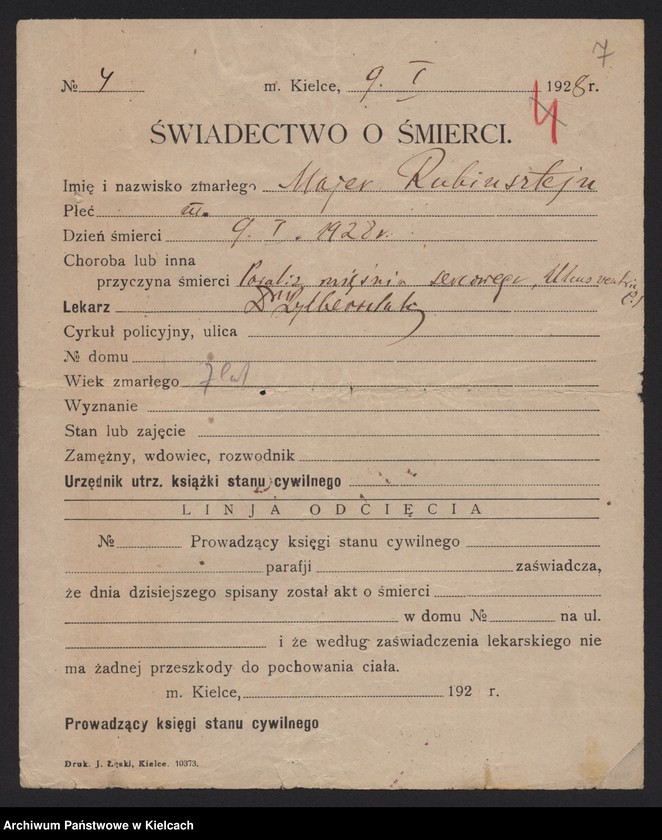 7
№ 4 m. Kielce, 9. I 1928 r.
4
ŚWIADECTWO O ŚMIERCI.
Imię i nazwisko zmarłego Majer Rubinsztejn
Płeć m.
Dzień śmierci 9. I. 1928 r.
Choroba lub inna
przyczyna śmierci mięśnia sercowego, Ulcus
Lekarz Dr
Cyrkuł policyjny, ulica
№ domu
Wiek zmarłego 7 lat
Wyznanie
Stan lub zajęcie
Zamężny, wdowiec, rozwodnik
Urzędnik utrz. książki stanu cywilnego
LINJA ODCIĘCIA
№ Prowadzący księgi stanu cywilnego
parafji zaświadcza,
że dnia dzisiejszego spisany został akt o śmierci
w domu № na ul.
i że według zaświadczenia lekarskiego nie
ma żadnej przeszkody do pochowania ciała.
m. Kielce, 192 r.
Prowadzący księgi stanu cywilnego
Druk. J. Łęski, Kielce. 10373.
Archiwum Państwowe w Kielcach